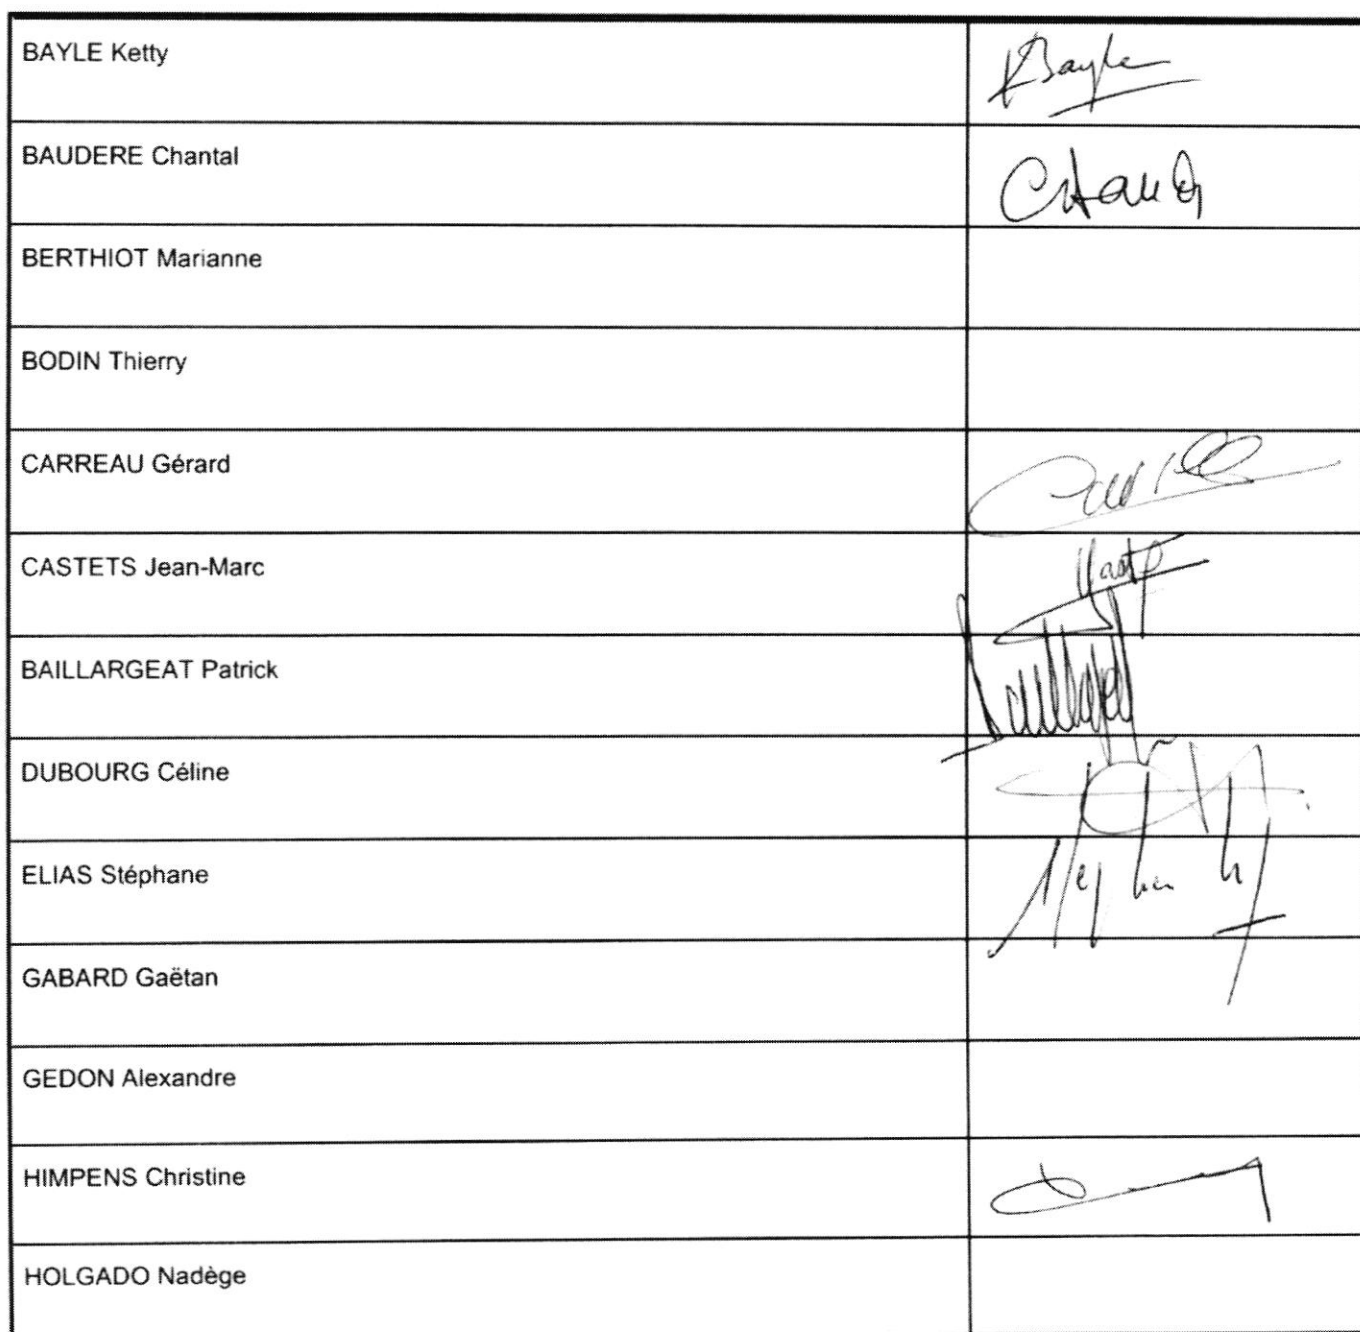 BAYLE Ketty
KBayle
BAUDERE Chantal
BERTHIOT Marianne
BODIN Thierry
CARREAU Gérard
CASTETS Jean-Marc
BAILLARGEAT Patrick
DUBOURG Céline
ELIAS Stéphane
GABARD Gaëtan
GEDON Alexandre
HIMPENS Christine
HOLGADO Nadège